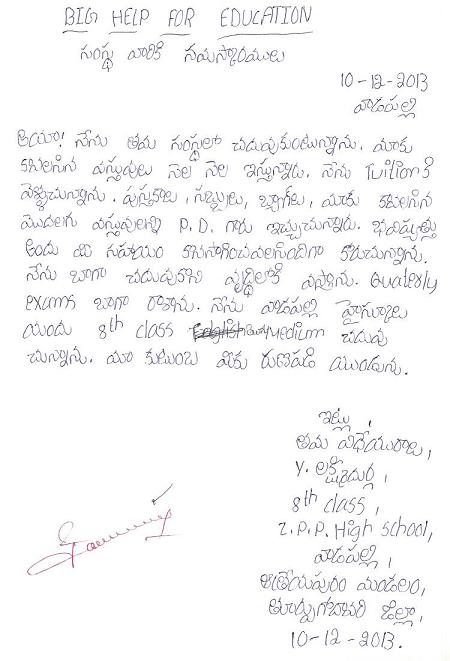 BIG HELP FOR EDUCATION
సంస్థ వారికి నమస్కారములు
10-12-2013
వాడపల్లి
అయా! నేను తమ సంస్థలో చదువుకుంటున్నాను. మాకు
కావలసిన వస్తువులు నెల నెల ఇస్తున్నారు. నేను Tuition కి
వెళ్ళుచున్నాను. పుస్తకాలు, సబ్బులు, బ్యాగ్‌లు, మాకు కావలసిన
మొదలగు వస్తువులన్ని P.D. గారు ఇచ్చుచున్నారు. భవిష్యత్తు
అందు మీ సహాయం కొనసాగించవలసిందిగా కోరుచున్నాను.
నేను బాగా చదువుకొని వృద్ధిలోకి వస్తాను. Quaterly
exams బాగా రాశాను. నేను వాడపల్లి హైస్కూలు
యందు 8th class Medium చదువు
చున్నాను. మా కుటుంబ మీకు రుణపడి యుండును.
ఇట్లు,
తమ విధేయురాలు,
Y. లక్ష్మీదుర్గ,
8th class,
Z.P.P. High school,
వాడపల్లి,
ఆత్రేయపురం మండలం,
తూర్పుగోదావరి జిల్లా,
10-12-2013.